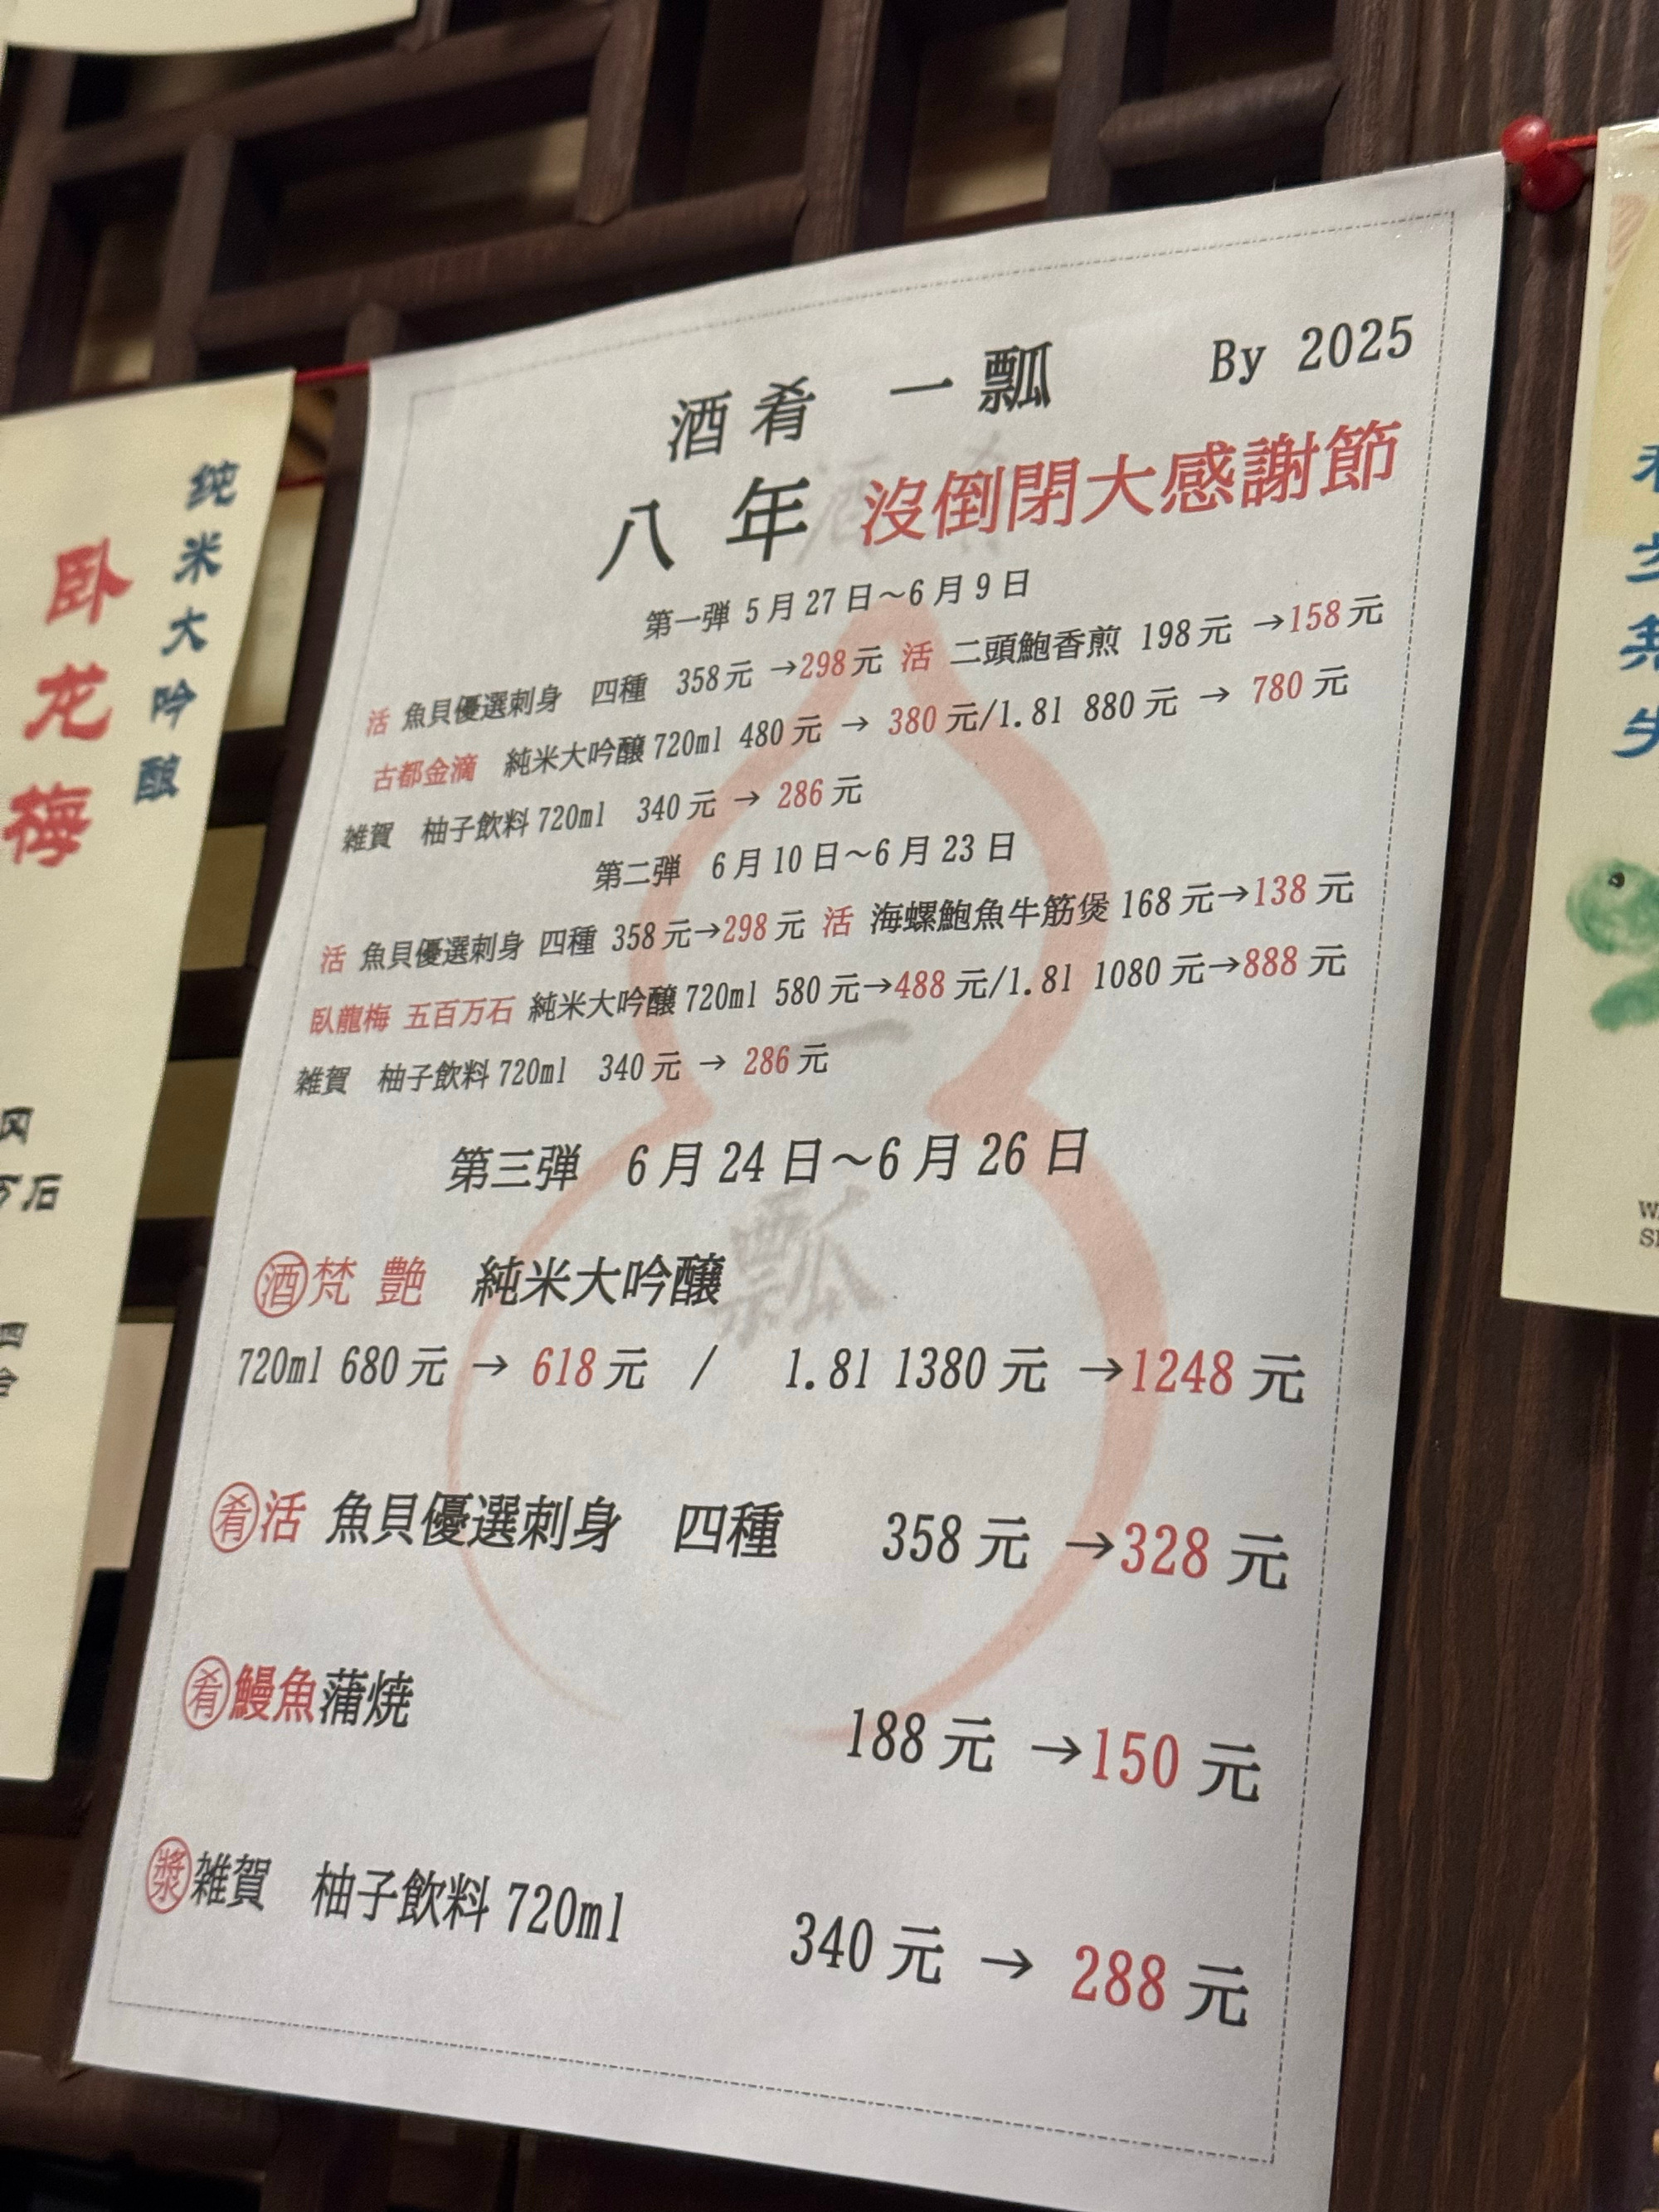 酒肴 一瓢 By 2025
八年 沒倒閉大感謝節
第一弾 5月27日～6月9日
活 魚貝優選刺身 四種 358元 →298元 活 二頭鮑香煎 198元 →158元
古都金滴 純米大吟釀 720ml 480元 → 380元/1.8l 880元 → 780元
雑賀 柚子飲料 720ml 340元 → 286元
第二弾 6月10日～6月23日
活 魚貝優選刺身 四種 358元→298元 活 海螺鮑魚牛筋煲 168元→138元
臥龍梅 五百万石 純米大吟釀 720ml 580元→488元/1.8l 1080元→888元
雑賀 柚子飲料 720ml 340元 → 286元
第三弾 6月24日～6月26日
酒 梵 艶 純米大吟釀
720ml 680元 → 618元 / 1.8l 1380元 →1248元
肴 活 魚貝優選刺身 四種 358元 →328元
肴 鰻魚蒲焼 188元 →150元
漿 雑賀 柚子飲料 720ml 340元 → 288元
酒肴
一
瓢
纯米大吟酿
卧龙梅